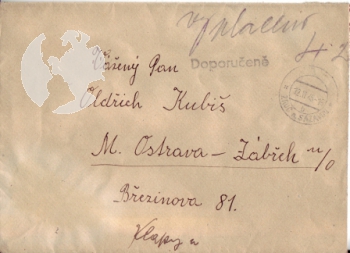 vyplaceno
Doporučeně
Vážený Pan
Oldřich Kubiš
M. Ostrava – Zábřeh n/O
Březinova 81.